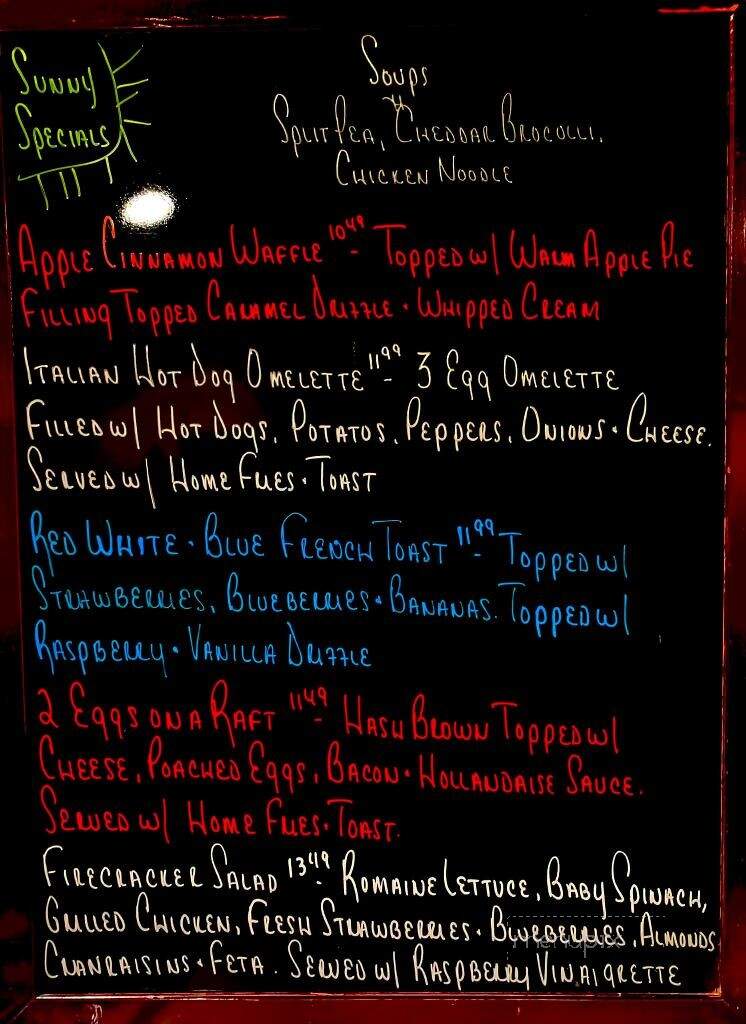 Sunny
Specials
Soups
Split Pea, Cheddar Brocolli,
Chicken Noodle
Apple Cinnamon Waffle 10.49 - Topped w/ Warm Apple Pie
Filling Topped Caramel Drizzle + Whipped Cream
Italian Hot Dog Omelette 11.99 - 3 Egg Omelette
Filled w/ Hot Dogs, Potatos, Peppers, Onions + Cheese.
Served w/ Home Fries + Toast
Red White + Blue French Toast 11.99 - Topped w/
Strawberries, Blueberries + Bananas. Topped w/
Raspberry + Vanilla Drizzle
2 Eggs on a Raft 11.49 - Hash Brown Topped w/
Cheese, Poached Eggs, Bacon + Hollandaise Sauce.
Served w/ Home Fries + Toast.
Firecracker Salad 13.49 - Romaine Lettuce, Baby Spinach,
Grilled Chicken, Fresh Strawberries + Blueberries, Almonds
Cranraisins + Feta. Served w/ Raspberry Vinaigrette
Menupix